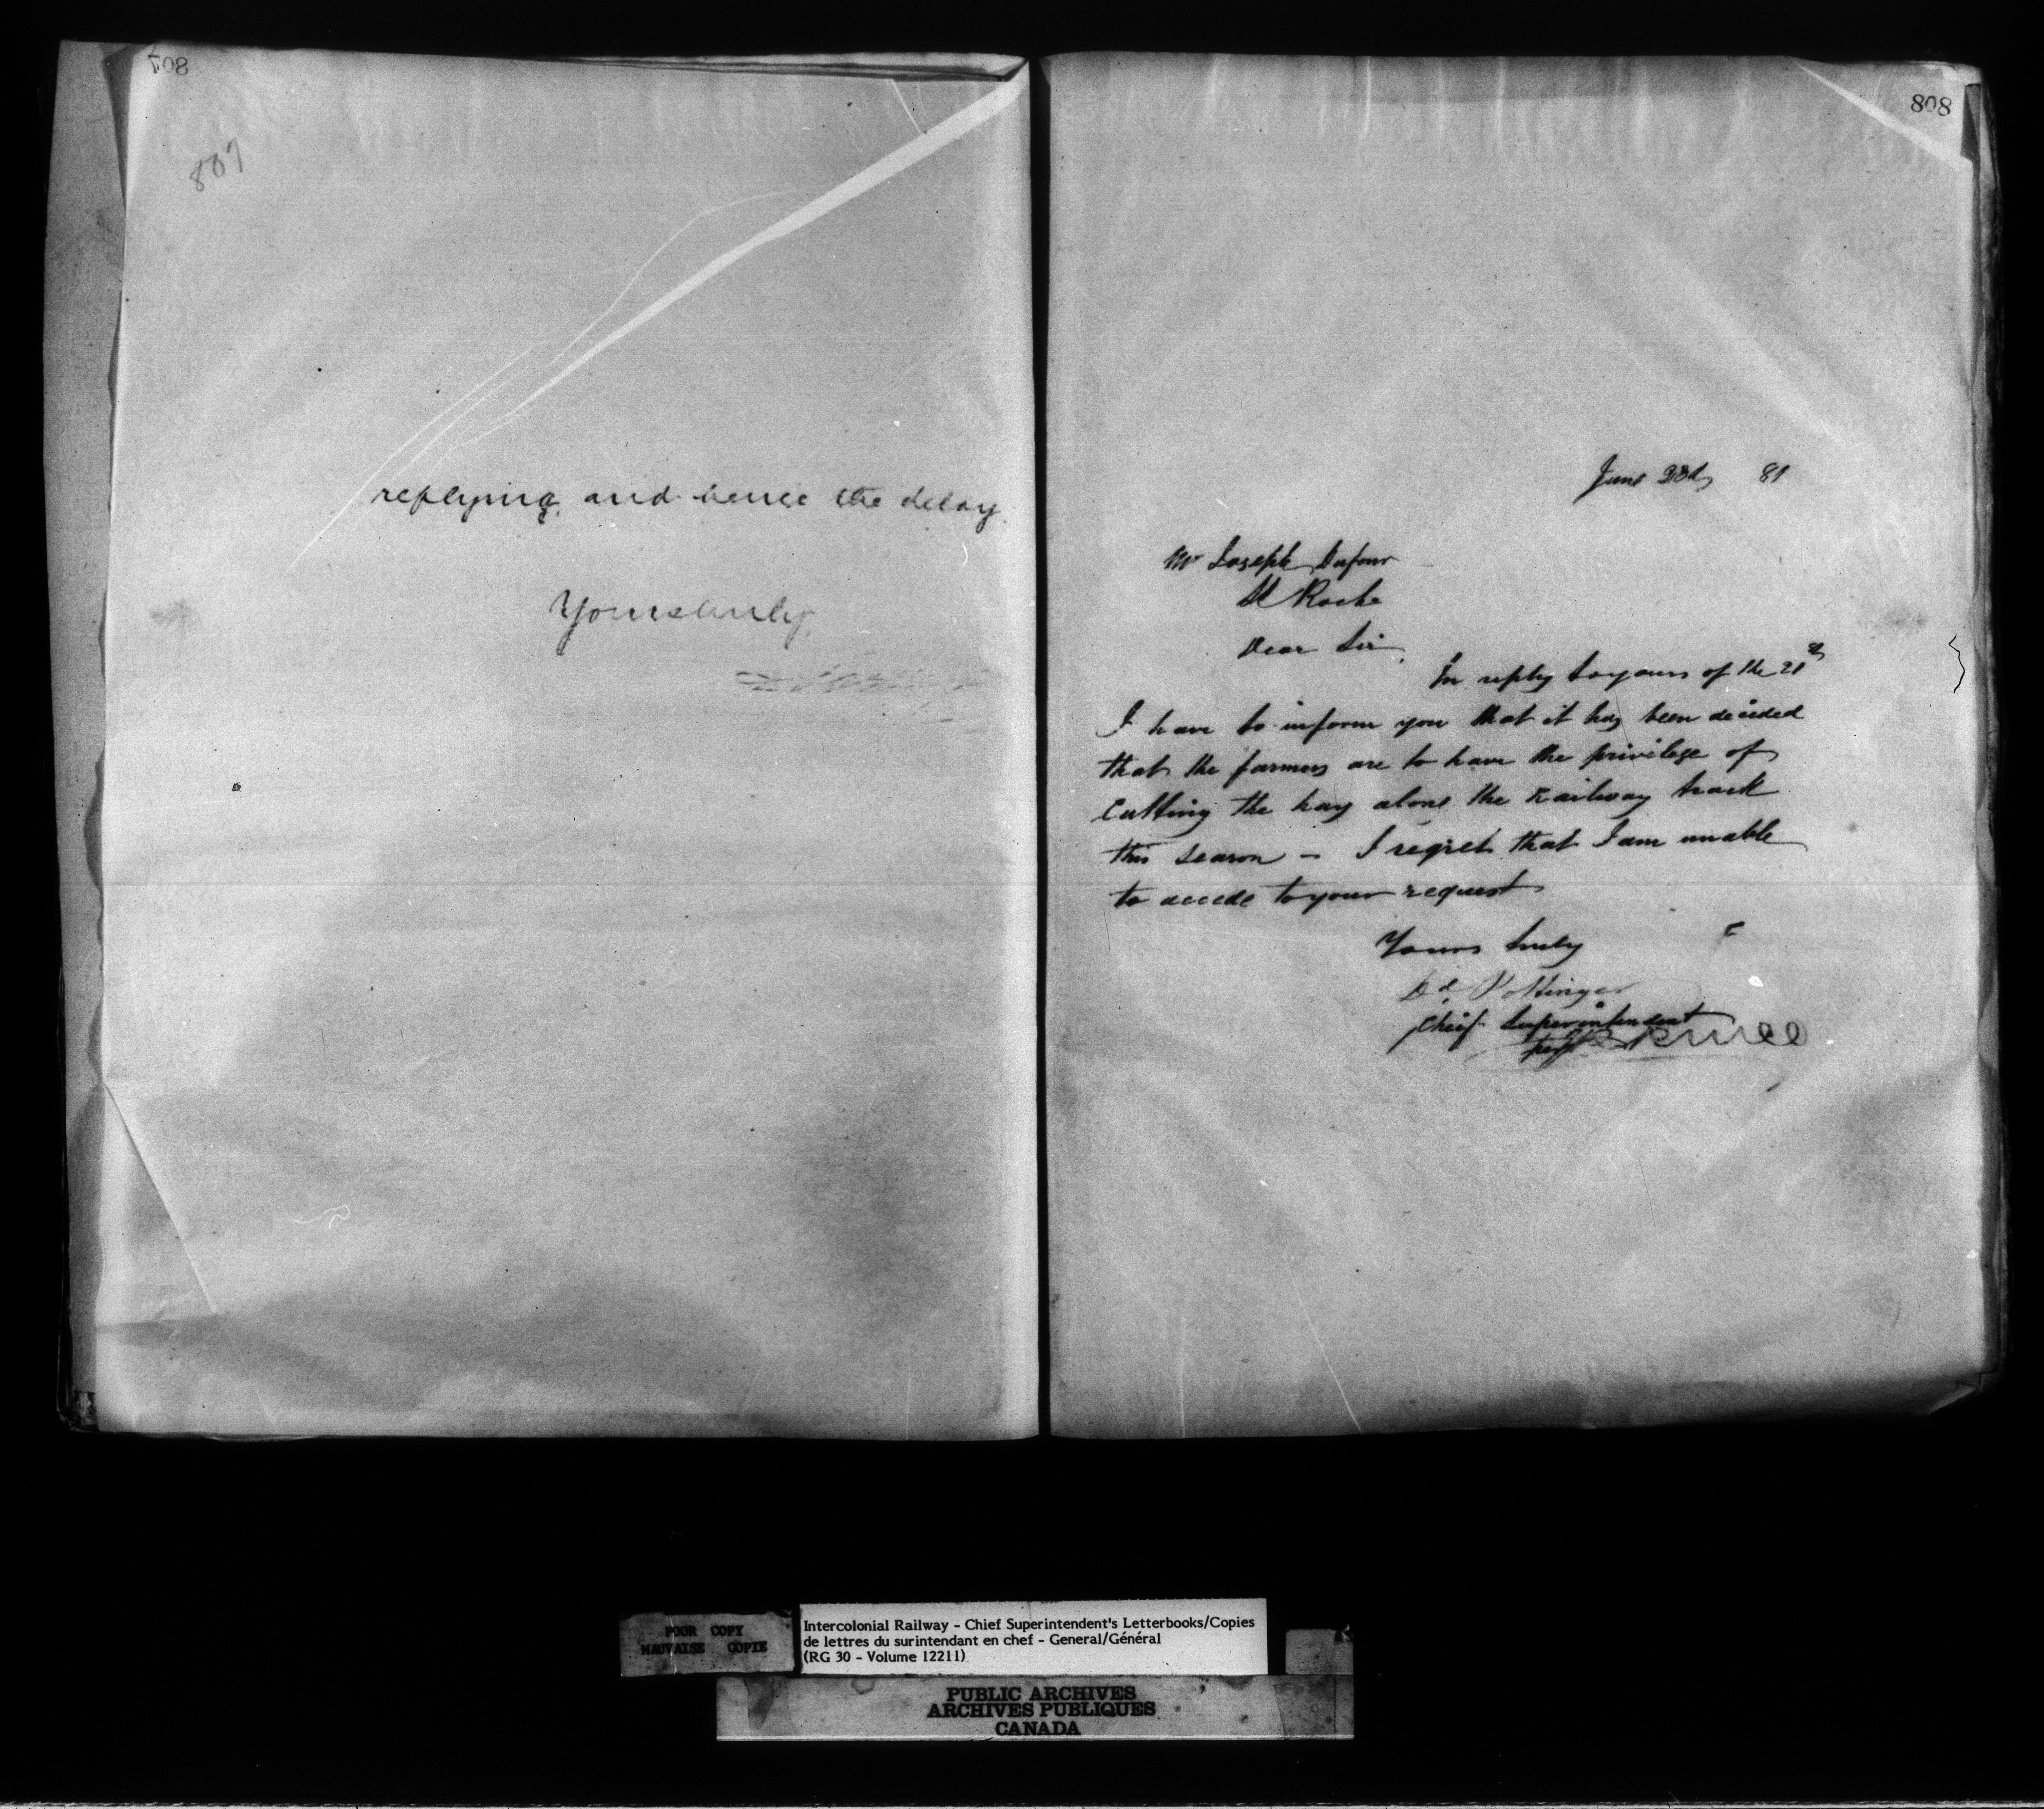 807
807
replying, and hence the delay.
Yours truly,
808
June 28th, 81
Mr Joseph Dufour
St Roche
Dear Sir,
In reply to yours of the 21st
I have to inform you that it has been decided
that the farmers are to have the privilege of
Cutting the hay along the Railway track
this season – I regret that I am unable
to accede to your request
Yours truly
Dd Pottinger
Chief Superintendent
POOR COPY
MAUVAISE COPIE
Intercolonial Railway - Chief Superintendent's Letterbooks/Copies
de lettres du surintendant en chef - General/Général
(RG 30 - Volume 12211)
PUBLIC ARCHIVES
ARCHIVES PUBLIQUES
CANADA